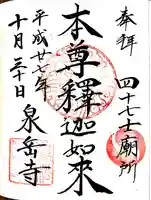 奉拝
四十七士廟所
本尊釋迦如来
平成廿七年
十月三十日
泉岳寺